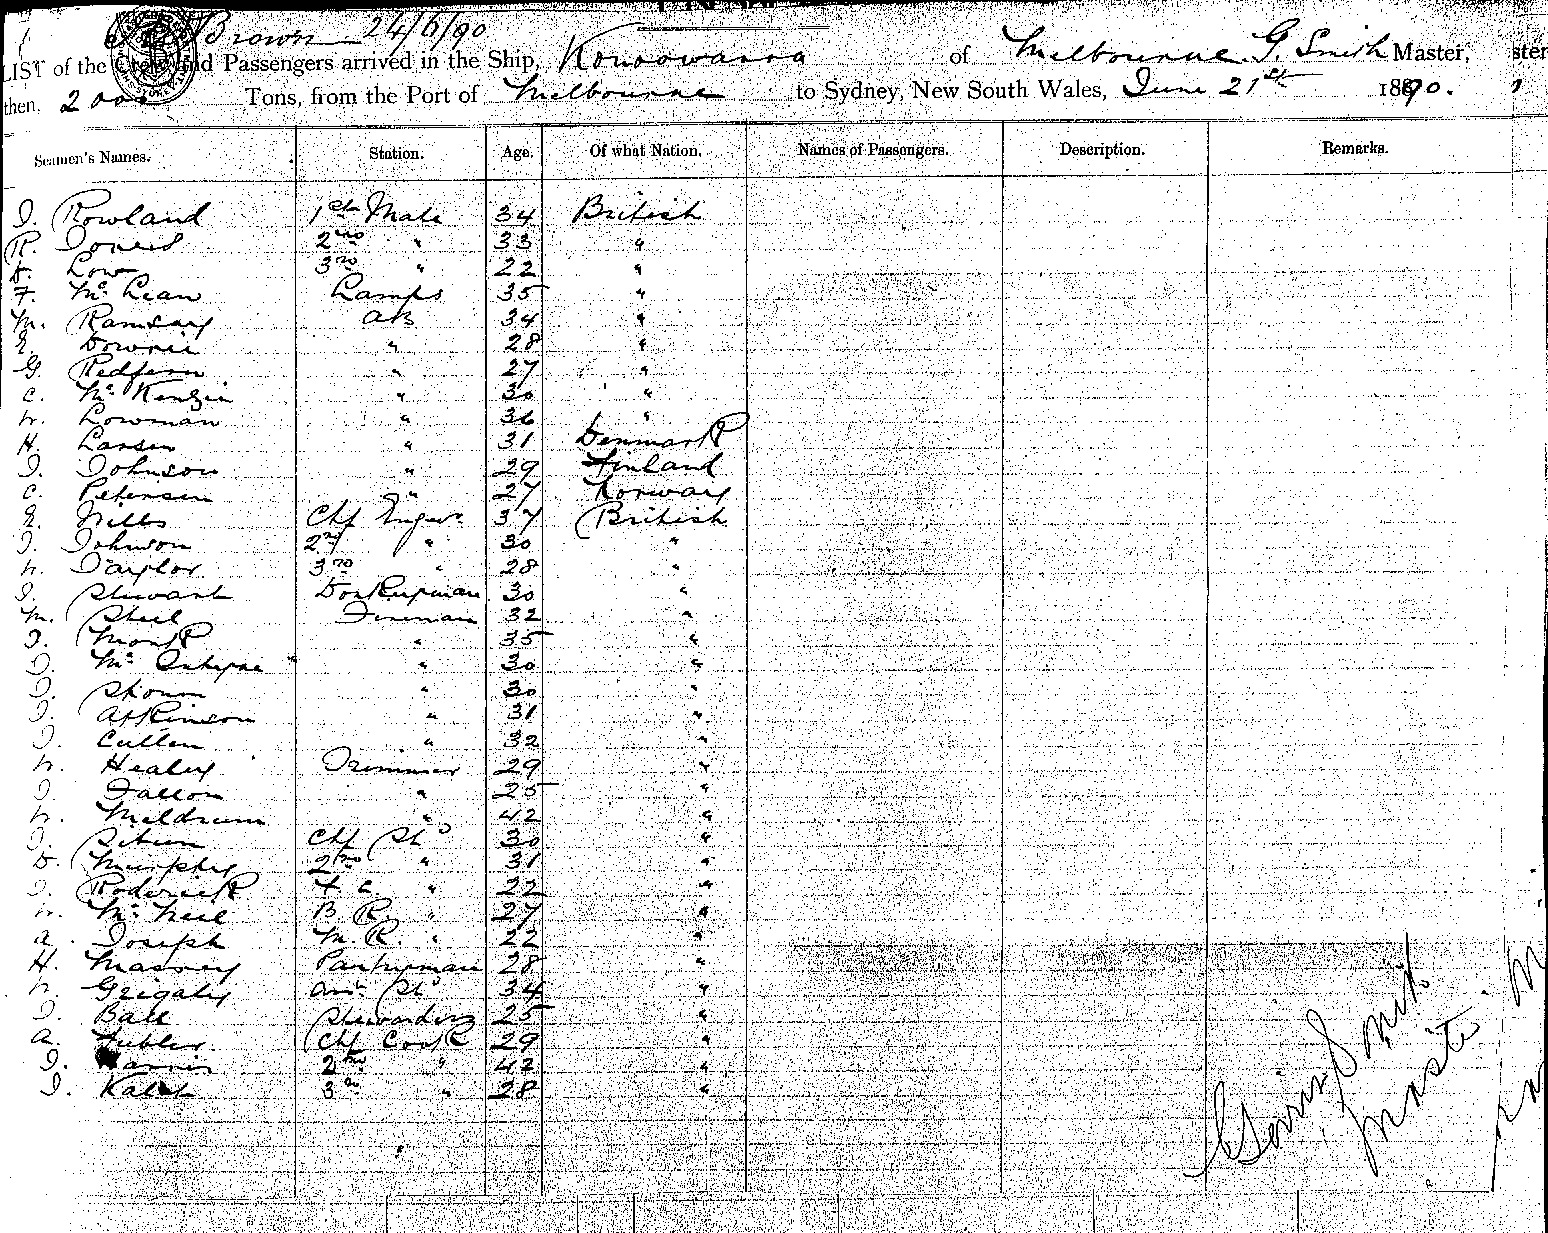 Brown 24/6/90
LIST of the Crew and Passengers arrived in the Ship, Konoowarra of Melbourne G. Smith Master,
then, 2000 Tons, from the Port of Melbourne to Sydney, New South Wales, June 21st 1890.
Seamen's Names. Station. Age. Of what Nation. Names of Passengers. Description. Remarks.
J. Rowland 1st Mate 34 British
R. 2nd " 33 "
D. Low 3rd " 22 "
F. McLean Lamps 35 "
M. Ramsay AB 34 "
E. Downie " 28 "
G. Redfern " 27 "
C. McKenzie " 30 "
W. Lowman " 36 "
H. Larsen " 31 Denmark
J. Johnson " 29 Finland
C. Petersen " 27 Norway
E. Chf Engnr 37 British
J. Johnson 2nd " 30 "
W. Taylor 3rd " 28 "
J. Stewart Donkeyman 30 "
M. Steel Fireman 32 "
J. Monk " 35 "
J. McIntyre " 30 "
J. " 30 "
J. Atkinson " 31 "
J. Cullen " 32 "
W. Healey Trimmer 29 "
J. Fallon " 25 "
W. Meldrum " 42 "
J. Chf Std 30 "
D. Murphy 2nd " 31 "
J. Roderick F.C. " 22 "
W. McNeil B.R. " 27 "
A. Joseph M.R. " 22 "
H. Massey Pantryman 28 "
W. 34 "
J. Ball Stewardess 25 "
A. Chf Cook 29 "
J. Harris 2nd " 42 "
J. 3rd " 28 "
Smith
Master